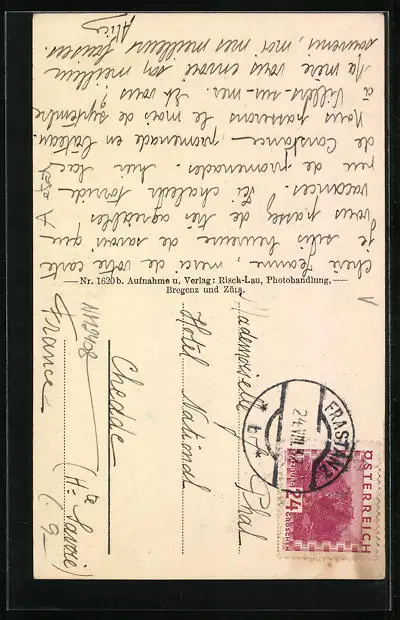 Chère Jeanne, merci de votre carte
je suis heureuse de savoir que
vous passez de très agréables
vacances. Ici chaleur torride
peu de promenades. hier lac
de Constance promenade en bateau.
Nous passerons le mois de septembre
à Villers-sur-mer. Et vous?
Ma mère vous envoie son meilleur
souvenir, moi mes meilleurs baisers.
Alice
Nr. 1620b. Aufnahme u. Verlag: Risch-Lau, Photohandlung,
Bregenz und Zürs.
Mademoiselle J. Phal
Hotel National
Chedde
(Hte Savoie)
France
ÖSTERREICH
24
GROSCHEN
FRASTANZ
24.VIII.32